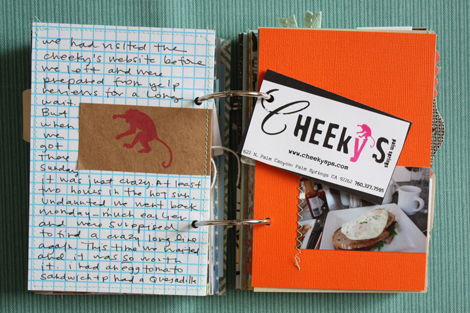 we had visited the
cheeky's website before
we left and were
prepared from yelp
reviews for a long
wait
But
when
we
got
there
Sunday
it was just crazy. At least
two hours in the hot sun.
Undaunted we went back
monday - much earlier
and were surprised
to find a crazy long line
again. This time we waited
and it was so worth
it. I had an egg tomato
sandwich + p had a quesadilla
CHEEKY'S
www.cheekysps.com
622 N. Palm Canyon Palm Springs CA 92262 760.327.7595